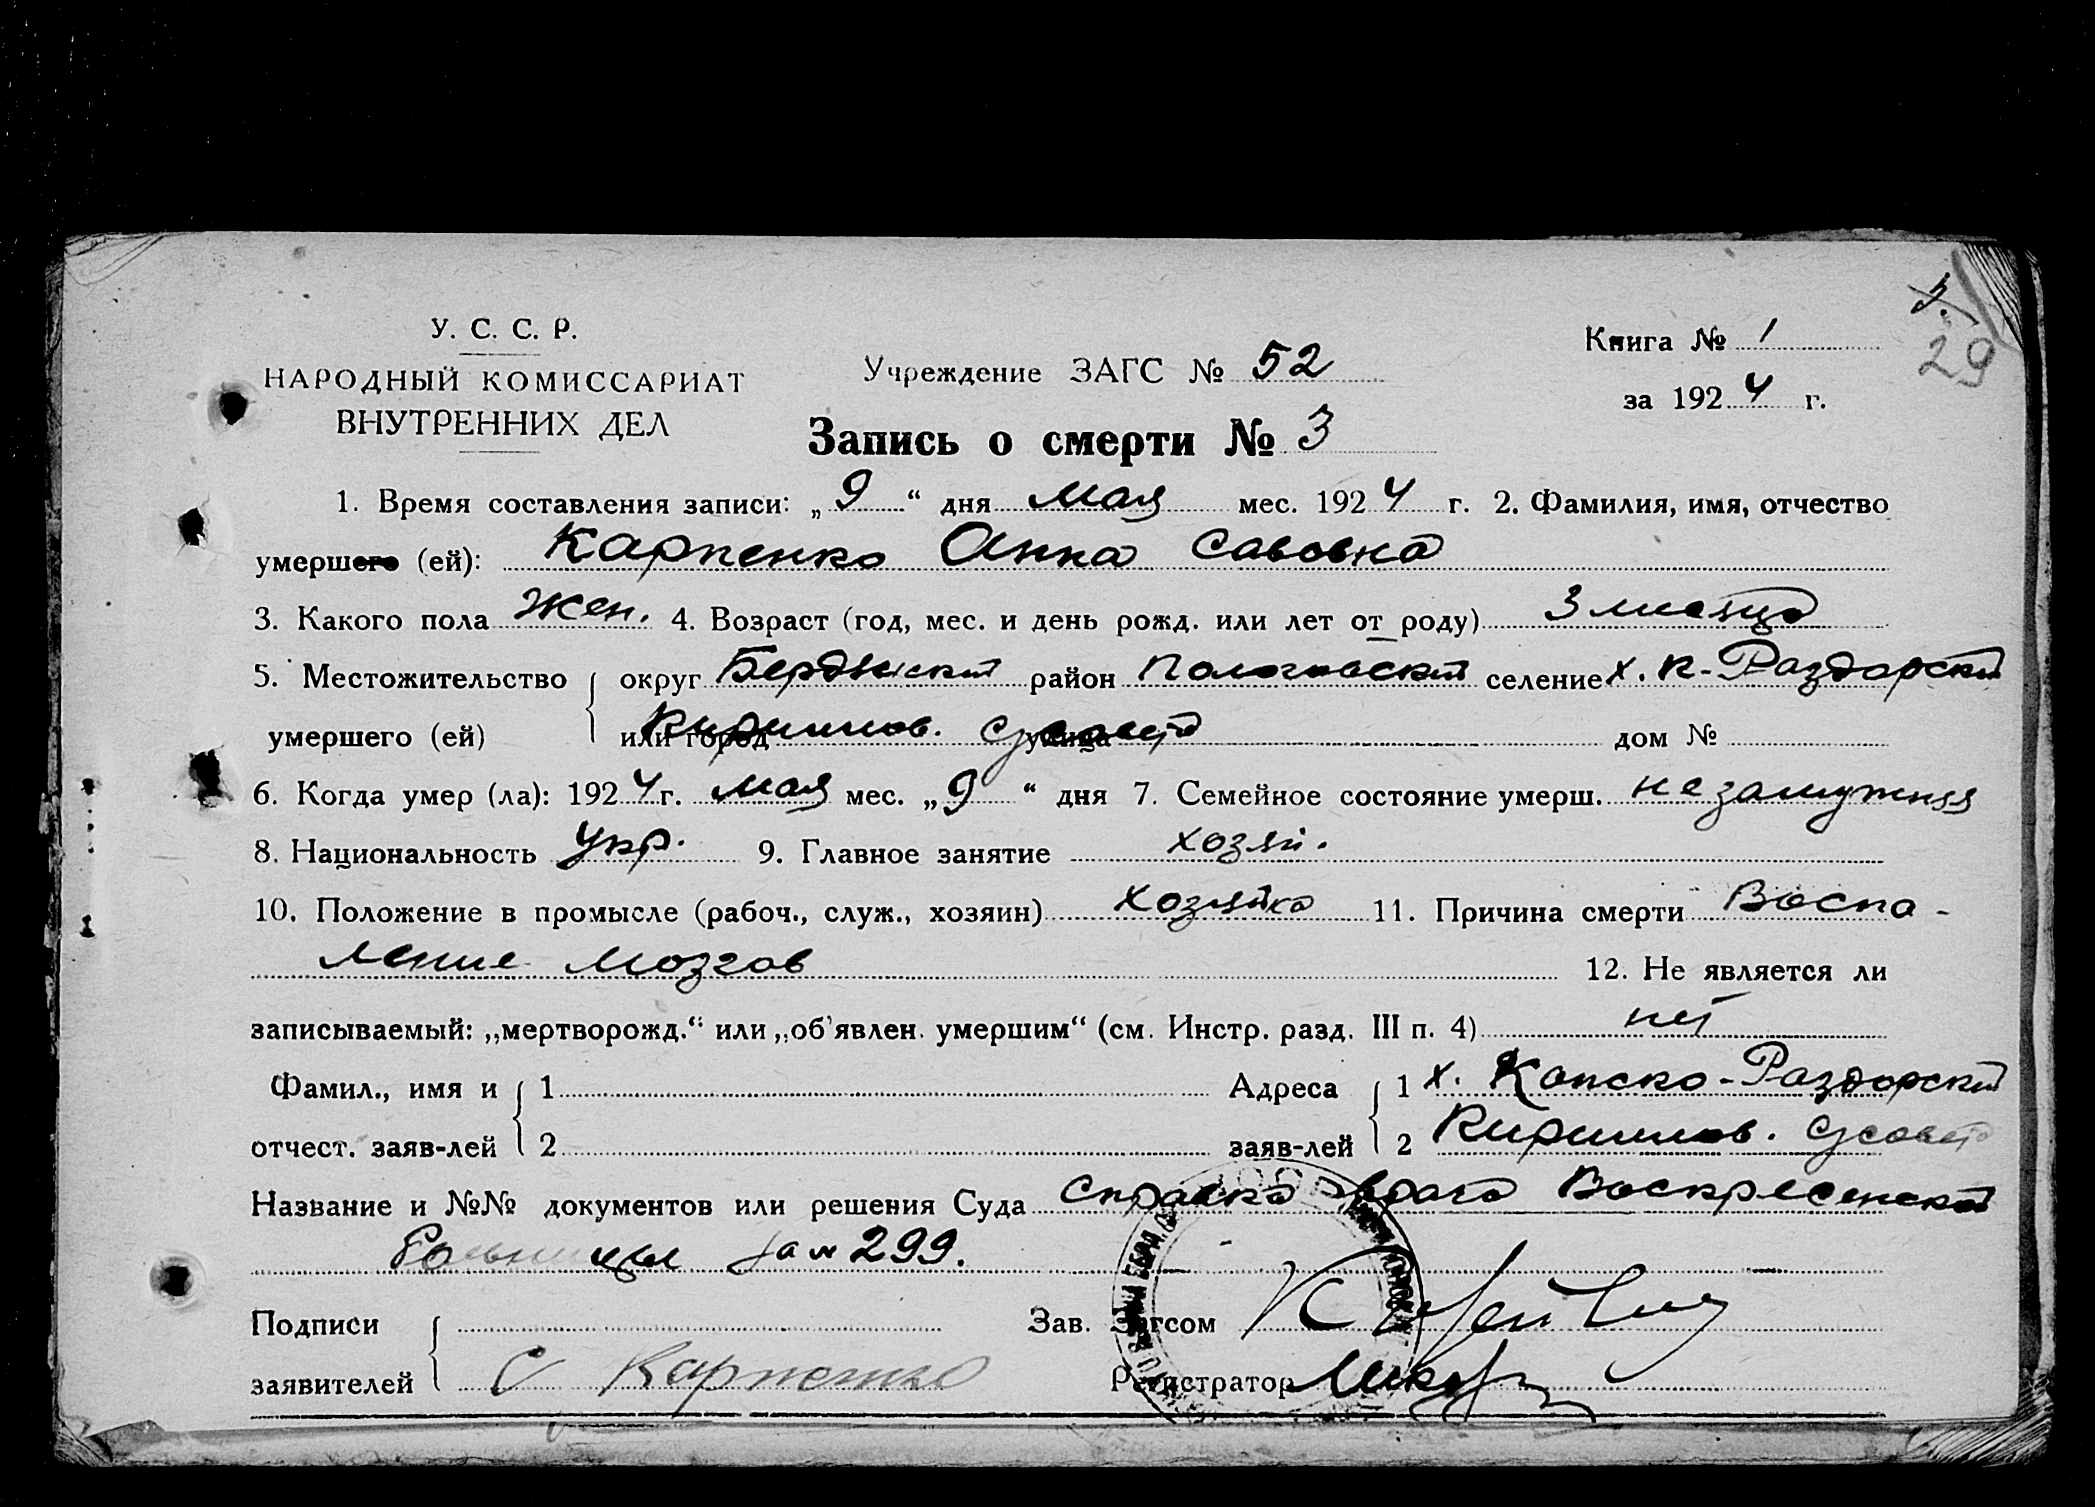 29
У. С. С. Р.
НАРОДНЫЙ КОМИССАРИАТ
ВНУТРЕННИХ ДЕЛ
Учреждение ЗАГС № 52
Книга № 1
за 1924 г.
Запись о смерти № 3
1. Время составления записи: „9“ дня мая мес. 1924 г. 2. Фамилия, имя, отчество
умершего (ей): Карпенко Анна Савовна
3. Какого пола жен. 4. Возраст (год, мес. и день рожд. или лет от роду) 3 месяца
5. Местожительство округ Бердянский район Пологовский селение х. К-Раздорский
умершего (ей) или город Кириллов. сусовета улица дом №
6. Когда умер (ла): 1924 г. мая мес. „9“ дня 7. Семейное состояние умерш. незамужняя
8. Национальность Укр. 9. Главное занятие хозяй.
10. Положение в промысле (рабоч., служ., хозяин) хозяйка 11. Причина смерти Воспа-
ление мозгов 12. Не является ли
записываемый: „мертворожд.“ или „об'явлен. умершим“ (см. Инстр. разд. III п. 4) нет
Фамил., имя и 1 Адреса 1 х. Конско-Раздорский
отчест. заяв-лей 2 заяв-лей 2 Кириллов. с/совета
Название и №№ документов или решения Суда Справка врача Воскресенской
больницы за № 299.
Подписи Зав. Загсом
заявителей С Карпенко Регистратор